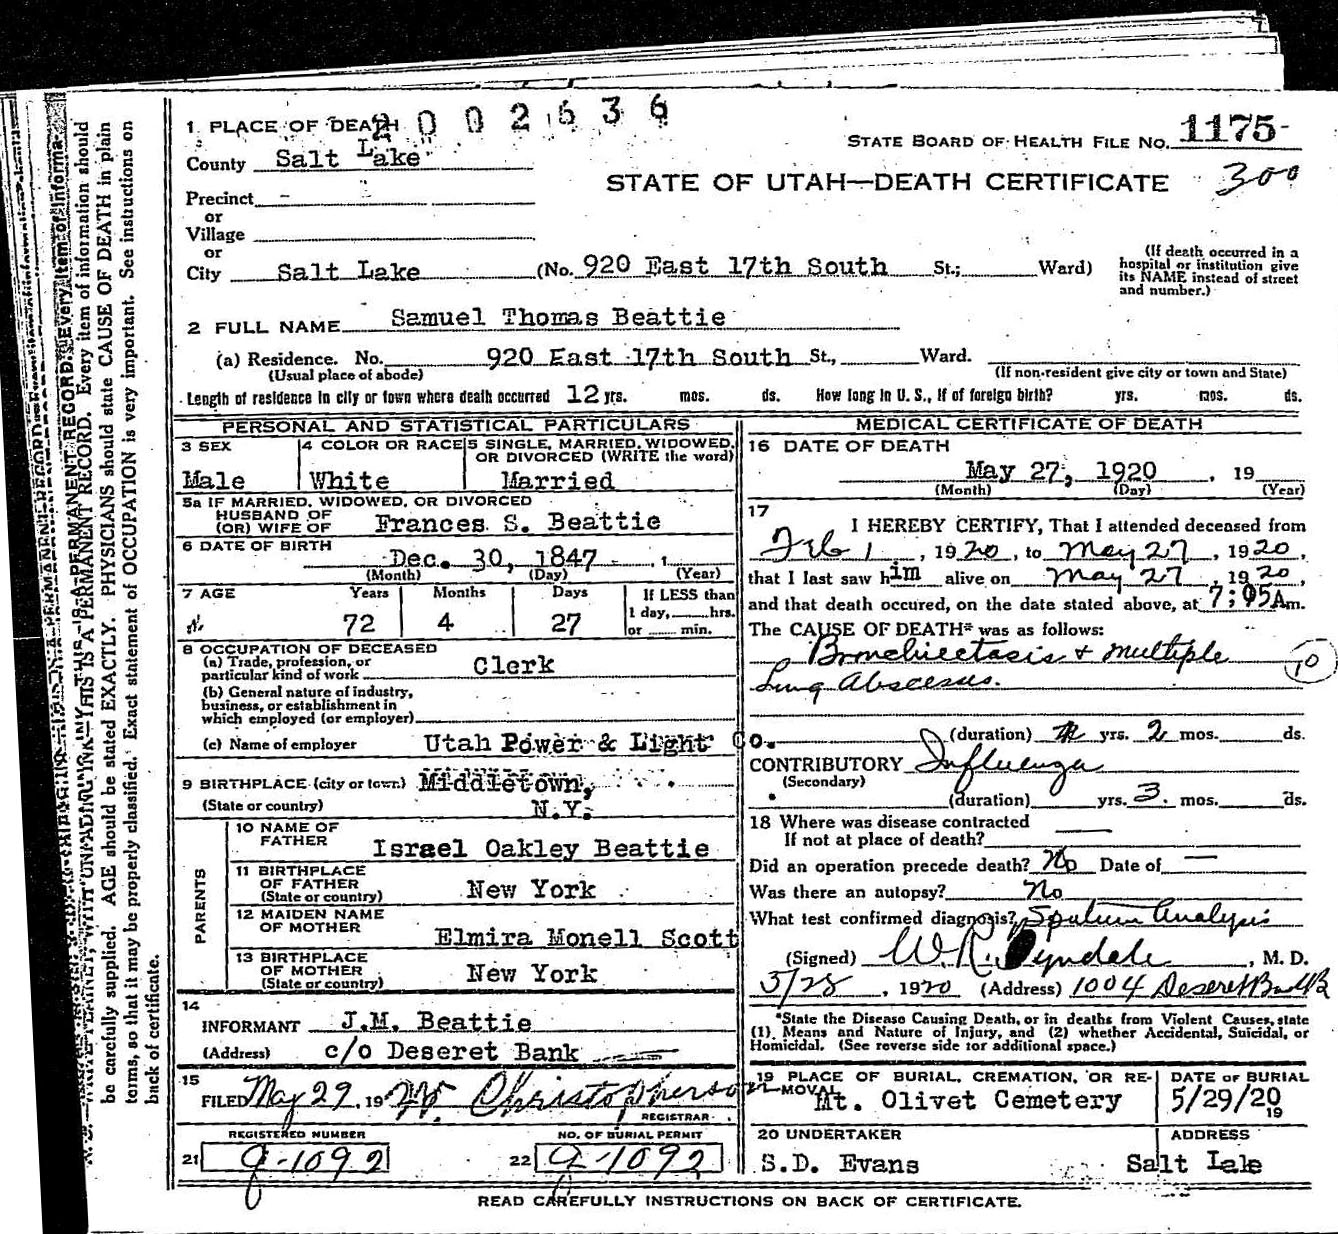 2002636
1 PLACE OF DEATH
STATE BOARD OF HEALTH FILE NO. 1175-
County Salt Lake
STATE OF UTAH—DEATH CERTIFICATE 300
Precinct -
or
Village
or
City Salt Lake (No. 920 East 17th South St.; Ward)
(If death occurred in a
hospital or institution give
its NAME instead of street
and number.)
2 FULL NAME Samuel Thomas Beattie
(a) Residence. No. 920 East 17th South St., Ward.
(Usual place of abode) (If non-resident give city or town and State)
Length of residence in city or town where death occurred 12 yrs. mos. ds. How long in U. S., if of foreign birth? yrs. mos. ds.
PERSONAL AND STATISTICAL PARTICULARS
3 SEX
Male
4 COLOR OR RACE
White
5 SINGLE, MARRIED, WIDOWED,
OR DIVORCED (WRITE the word)
Married
5a IF MARRIED, WIDOWED, OR DIVORCED
HUSBAND OF
(OR) WIFE OF Frances S. Beattie
6 DATE OF BIRTH
Dec. 30, 1847 , 1
(Month) (Day) (Year)
7 AGE Years Months Days If LESS than
1 day, hrs.
72 4 27 or min.
8 OCCUPATION OF DECEASED
(a) Trade, profession, or
particular kind of work Clerk
(b) General nature of industry,
business, or establishment in
which employed (or employer)
(c) Name of employer Utah Power & Light Co.
9 BIRTHPLACE (city or town) Middletown,
(State or country) N.Y.
PARENTS
10 NAME OF
FATHER Israel Oakley Beattie
11 BIRTHPLACE
OF FATHER
(State or country) New York
12 MAIDEN NAME
OF MOTHER Elmira Monell Scott
13 BIRTHPLACE
OF MOTHER
(State or country) New York
14
INFORMANT J.M. Beattie
(Address) c/o Deseret Bank
15
FILED May 29, 19 Christopherson
REGISTRAR
REGISTERED NUMBER NO. OF BURIAL PERMIT
21 g-1092 22 g-1092
MEDICAL CERTIFICATE OF DEATH
16 DATE OF DEATH
May 27, 1920 , 19
(Month) (Day) (Year)
17
I HEREBY CERTIFY, That I attended deceased from
Feb 1 , 1920 , to May 27 , 1920,
that I last saw him alive on May 27 , 1920,
and that death occured, on the date stated above, at 7:05A m.
The CAUSE OF DEATH* was as follows:
Bronchiectasis & multiple
Lung Abscesses. 10
(duration) yrs. 2 mos. ds.
CONTRIBUTORY Influenza
(Secondary)
(duration) yrs. 3. mos. ds.
18 Where was disease contracted
If not at place of death? —
Did an operation precede death? No Date of —
Was there an autopsy? No
What test confirmed diagnosis? Sputum Analysis
(Signed) W.R. Tyndale , M. D.
5/28 , 1920 (Address) 1004 Deseret Bank B
*State the Disease Causing Death, or in deaths from Violent Causes, state
(1) Means and Nature of Injury, and (2) whether Accidental, Suicidal, or
Homicidal. (See reverse side for additional space.)
19 PLACE OF BURIAL, CREMATION, OR RE-
MOVAL
Mt. Olivet Cemetery
DATE OF BURIAL
5/29/20
19
20 UNDERTAKER
S.D. Evans
ADDRESS
Salt Lale
READ CAREFULLY INSTRUCTIONS ON BACK OF CERTIFICATE.
THIS IS A PERMANENT RECORD. Every item of information should
be carefully supplied. AGE should be stated EXACTLY. PHYSICIANS should state CAUSE OF DEATH in plain
terms, so that it may be properly classified. Exact statement of OCCUPATION is very important. See instructions on
back of certificate.